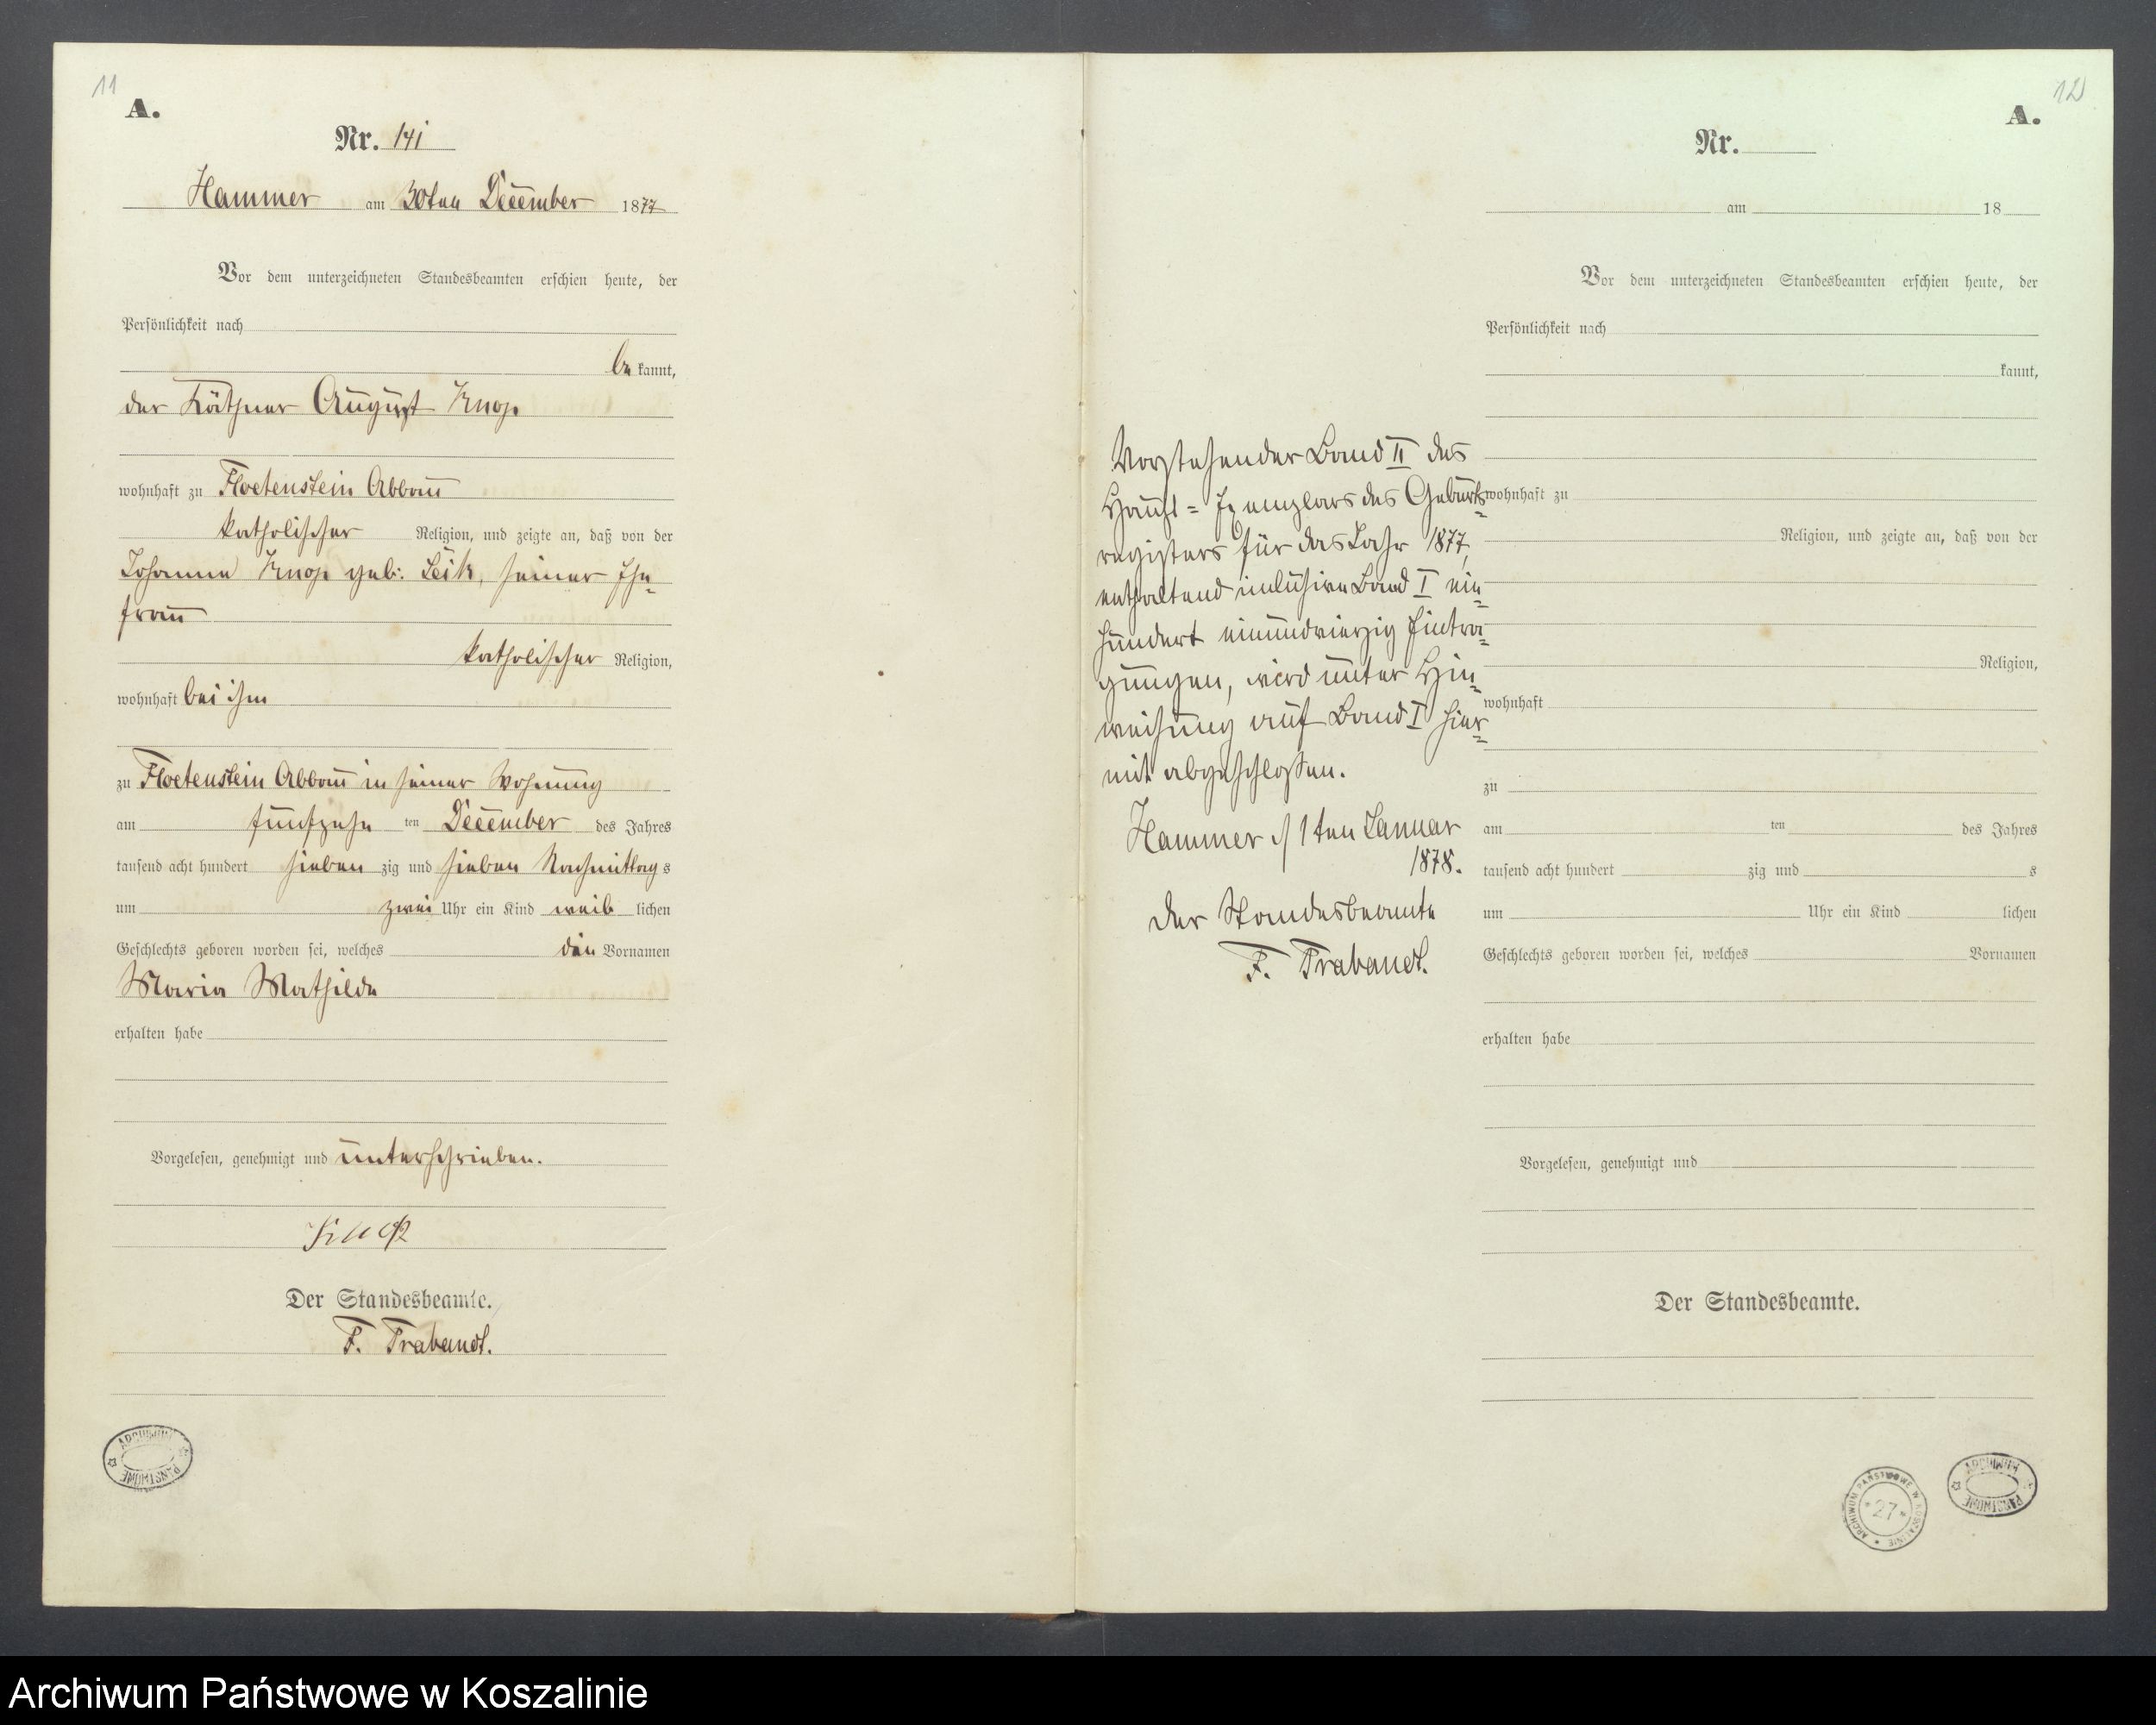 11
A.
Nr. 141
Hammer am 30ten December 1877
Vor dem unterzeichneten Standesbeamten erschien heute, der
Persönlichkeit nach
be kannt,
der Käthner August Knop
wohnhaft zu Floetenstein Abbau
katholischer Religion, und zeigte an, daß von der
Johanna Knop geb: , seiner Ehe=
frau
katholischer Religion,
wohnhaft bei ihm
zu Floetenstein Abbau in seiner Wohnung
am fünfzehn ten December des Jahres
tausend acht hundert sieben zig und sieben Nachmittag s
um zwei Uhr ein Kind weib lichen
Geschlechts geboren worden sei, welches die Vornamen
Maria Mathilde
erhalten habe
Vorgelesen, genehmigt und unterschrieben.
Knop
Der Standesbeamte.
F. Trabandt.
ARCHIWUM PAŃSTWOWE
12
A.
Nr.
am 18
Vor dem unterzeichneten Standesbeamten erschien heute, der
Persönlichkeit nach
kannt,
Vorstehender Band II des
Haupt=Exemplars des Geburts=
registers für das Jahr 1877,
enthaltend inclusive Band I ein=
hundert einundvierzig Eintra=
gungen, wird unter Hin=
weisung auf Band I hier=
mit abgeschlossen.
Hammer d/ 1ten Januar
1878.
Der Standesbeamte
F. Trabandt.
wohnhaft zu
Religion, und zeigte an, daß von der
Religion,
wohnhaft
zu
am ten des Jahres
tausend acht hundert zig und s
um Uhr ein Kind lichen
Geschlechts geboren worden sei, welches Vornamen
erhalten habe
Vorgelesen, genehmigt und
Der Standesbeamte.
ARCHIWUM PAŃSTWOWE W KOSZALINIE
*27*
ARCHIWUM PAŃSTWOWE
Archiwum Państwowe w Koszalinie